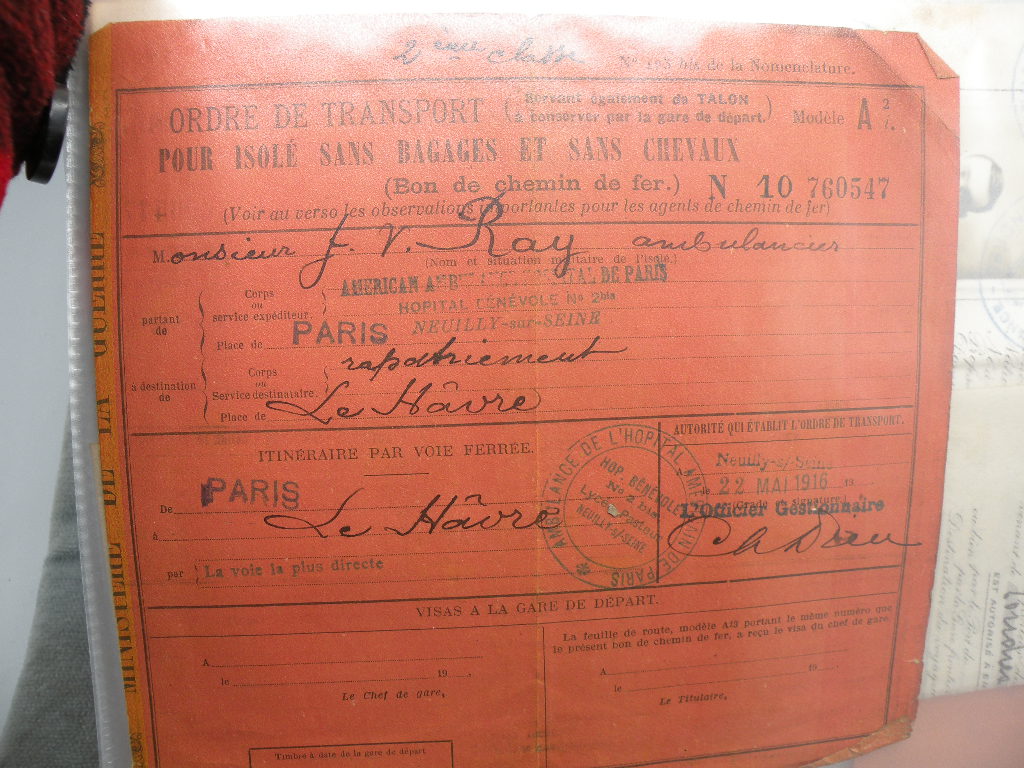 2ème classe
Nº 193 bis de la Nomenclature.
MINISTÈRE DE LA GUERRE
ORDRE DE TRANSPORT (Servant également de TALON
à conserver par la gare de départ.) Modèle A 2/7.
POUR ISOLÉ SANS BAGAGES ET SANS CHEVAUX
(Bon de chemin de fer.) N 10 760547
(Voir au verso les observations importantes pour les agents de chemin de fer)
Monsieur J. V. Ray ambulancier
(Nom et situation militaire de l'isolé.)
partant de
Corps ou service expéditeur.
AMERICAN AMBULANCE HOSPITAL DE PARIS
HOPITAL BÉNÉVOLE Nº 2bis
Place de PARIS NEUILLY-sur-SEINE
à destination de
Corps ou Service destinataire. rapatriement
Place de Le Hâvre
ITINÉRAIRE PAR VOIE FERRÉE.
De PARIS
à Le Hâvre
par La voie la plus directe
AMBULANCE DE L'HOPITAL AMERICAIN DE PARIS
HOP. BÉNÉVOLE
No 2 bis
Lycée Pasteur
NEUILLY-s/-SEINE
AUTORITÉ QUI ÉTABLIT L'ORDRE DE TRANSPORT.
Neuilly-s/-Seine
le 22 MAI 1916 19
L'Officier Gestionnaire
VISAS A LA GARE DE DÉPART.
A
le 19
Le Chef de gare,
La feuille de route, modèle A13 portant le même numéro que
le présent bon de chemin de fer, a reçu le visa du chef de gare.
A 19
le
Le Titulaire,
Timbre à date de la gare de départ
EST AUTORISÉ A